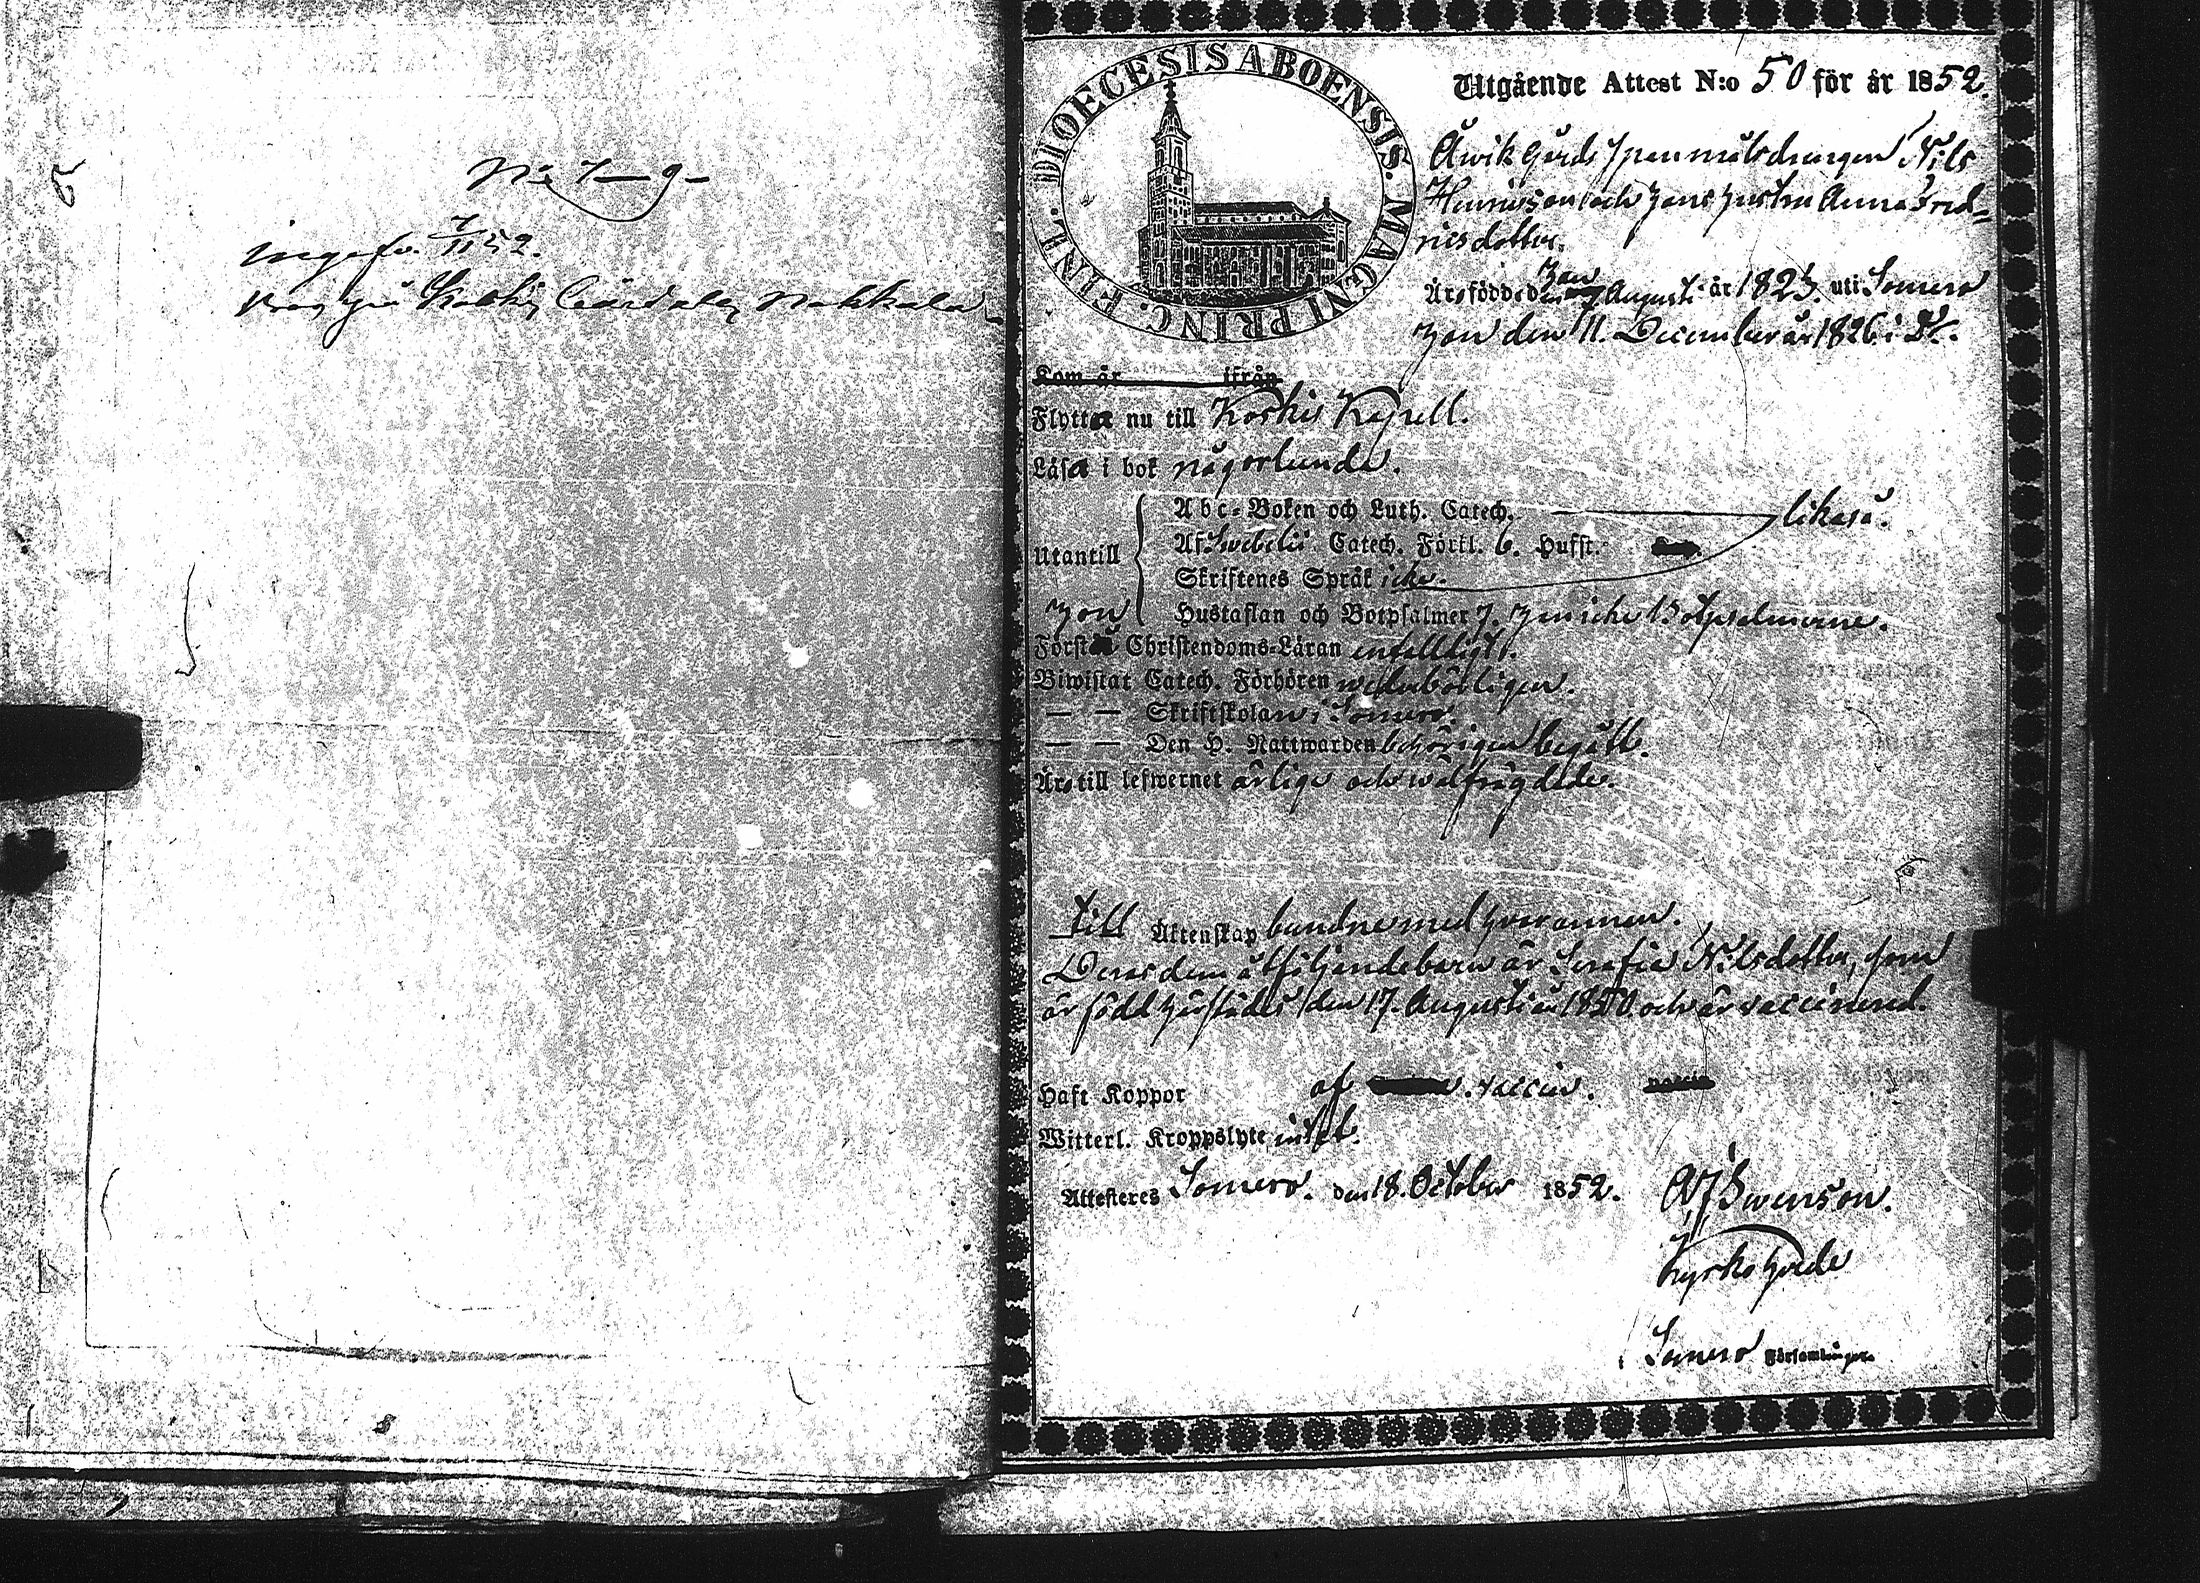 N:o 7-9-
ingefr. 7/11 52.
Utgående Attest N:o 50 för år 1852.
DIOECESIS ABOENSIS. MAGNI PRINC. FINL.
Åwik gårds spanmålsdrängen Nils
Henricsson och hans hustru Anna Fred-
ricsdotter.
Äro födde den han 7 Augusti år 1825. uti Somero
hon den 11. December år 1826 i D:o.
Kom år ifrån
Flytta nu till Koskis Kapell.
Läsa i bok någorlunda.
Utantill
Abc-Boken och Luth. Catech. likaså.
Af Swebelii Catech. Förkl. 6. Hufst.
Skriftenes Språk icke.
hon Hustaflan och Botpsalmer 7. han icke Botpsalmerne.
Förstå Christendoms-Läran enfalligt.
Biwistat Catech. Förhören wederbörligen.
— — Skriftskolan i Somero.
— — Den H. Nattwarden behörigen begått.
Äro till lefwernet ärlige och wälfrägdade.
till Äktenskap bundne med hwarannan.
Deras dem åtföljande barn är Serafia Nilsdotter, som
är född härstädes den 17. Augusti år 1850 och är vaccinerad.
Haft Koppor af vaccin.
Witterl. Kroppslyte intet.
Attesteres Somero. den 18. October 1852. Swenson.
Kyrkoherde
Somero Församlingar.